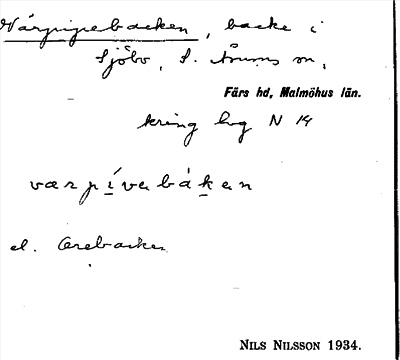 Värpipebacken, backe i
Sjöbo, S. Åsums sn,
Färs hd, Malmöhus län.
kring hg N 14
værpívabákan
el. Orebacken
NILS NILSSON 1934.